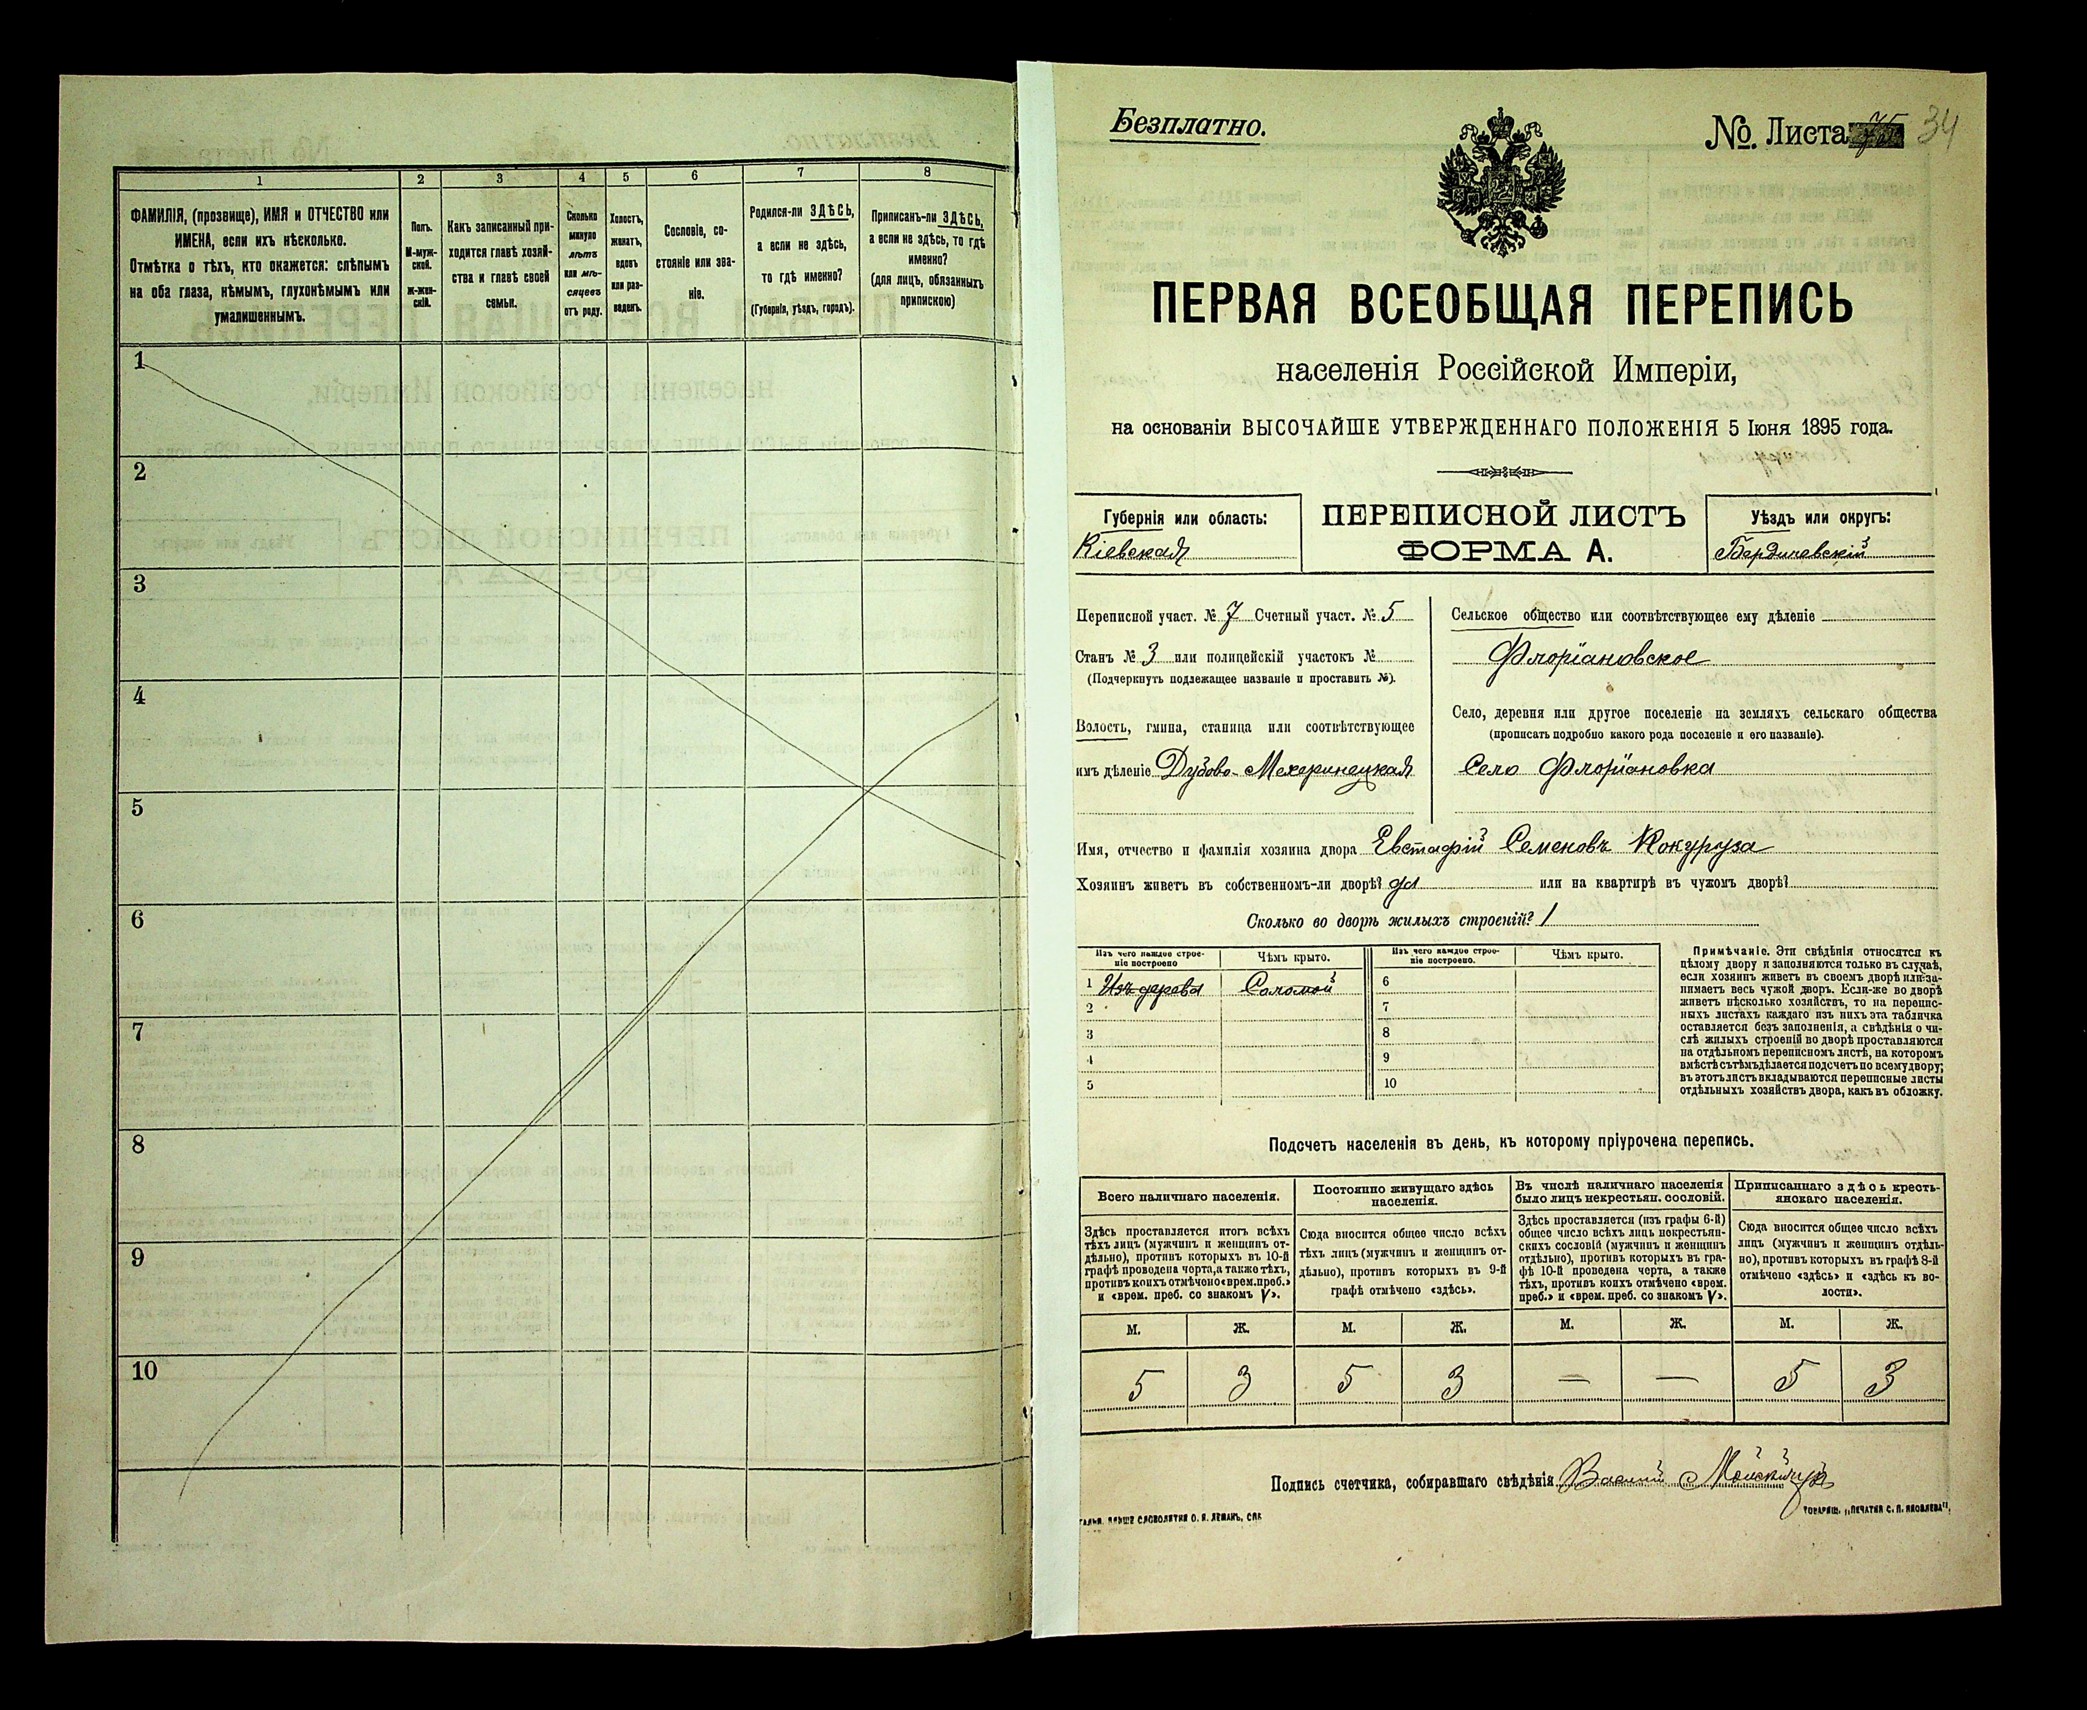 1
2
3
4
5
6
7
8
ФАМИЛІЯ, (прозвище), ИМЯ и ОТЧЕСТВО или
ИМЕНА, если ихъ нѣсколько.
Отмѣтка о тѣхъ, кто окажется: слѣпымъ
на оба глаза, нѣмымъ, глухонѣмымъ или
умалишеннымъ.
Полъ.
М-муж-
ской.
ж-жен-
скій.
Какъ записанный при-
ходится главѣ хозяй-
ства и главѣ своей
семьи.
Сколько
минуло
лѣтъ
или мѣ-
сяцевъ
отъ роду.
Холостъ,
женатъ,
вдовъ
или раз-
веденъ.
Сословіе, со-
стояніе или зва-
ніе.
Родился-ли ЗДѢСЬ,
а если не здѣсь,
то гдѣ именно?
(Губернія, уѣздъ, городъ).
Приписанъ-ли ЗДѢСЬ,
а если не здѣсь, то гдѣ
именно?
(для лицъ, обязанныхъ
припискою)
1
2
3
4
5
6
7
8
9
10
Безплатно.
№. Листа 75 34
ПЕРВАЯ ВСЕОБЩАЯ ПЕРЕПИСЬ
населенія Россійской Имперіи,
на основаніи ВЫСОЧАЙШЕ УТВЕРЖДЕННАГО ПОЛОЖЕНІЯ 5 Іюня 1895 года.
Губернія или область:
Кіевская
ПЕРЕПИСНОЙ ЛИСТЪ
ФОРМА А.
Уѣздъ или округъ:
Бердичевскій
Переписной участ. № 7 Счетный участ. № 5
Станъ № 3 или полицейскій участокъ №
(Подчеркнуть подлежащее названіе и проставить №).
Волость, гмина, станица или соотвѣтствующее
имъ дѣленіе Дубово-Махаринецкая
Сельское общество или соотвѣтствующее ему дѣленіе
Флоріановское
Село, деревня или другое поселеніе на земляхъ сельскаго общества
(прописать подробно какого рода поселеніе и его названіе).
Село Флоріановка
Имя, отчество и фамилія хозяина двора Евстафій Семеновъ Кокуруза
Хозяинъ живетъ въ собственномъ-ли дворѣ? да или на квартирѣ въ чужомъ дворѣ?
Сколько во дворѣ жилыхъ строеній? 1
Изъ чего каждое строе-
ніе построено
Чѣмъ крыто.
Изъ чего каждое строе-
ніе построено.
Чѣмъ крыто.
1 Изъ дерева Соломой
2
3
4
5
6
7
8
9
10
Примѣчаніе. Эти свѣдѣнія относятся къ
цѣлому двору и заполняются только въ случаѣ,
если хозяинъ живетъ въ своемъ дворѣ или за-
нимаетъ весь чужой дворъ. Если-же во дворѣ
живетъ нѣсколько хозяйствъ, то на перепис-
ныхъ листахъ каждаго изъ нихъ эта табличка
оставляется безъ заполненія, а свѣдѣнія о чи-
слѣ жилыхъ строеній во дворѣ проставляются
на отдѣльномъ переписномъ листѣ, на которомъ
вмѣстѣ съ тѣмъ дѣлается подсчетъ по всему двору;
въ этотъ листъ вкладываются переписные листы
отдѣльныхъ хозяйствъ двора, какъ въ обложку.
Подсчетъ населенія въ день, къ которому пріурочена перепись.
Всего наличнаго населенія.
Постоянно живущаго здѣсь
населенія.
Въ числѣ наличнаго населенія
было лицъ некрестьян. сословій.
Приписаннаго здѣсь кресть-
янскаго населенія.
Здѣсь проставляется итогъ всѣхъ
тѣхъ лицъ (мужчинъ и женщинъ от-
дѣльно), противъ которыхъ въ 10-й
графѣ проведена черта, а также тѣхъ,
противъ коихъ отмѣчено «врем. преб.»
и «врем. преб. со знакомъ V».
Сюда вносится общее число всѣхъ
тѣхъ лицъ (мужчинъ и женщинъ от-
дѣльно), противъ которыхъ въ 9-й
графѣ отмѣчено «здѣсь».
Здѣсь проставляется (изъ графы 6-й)
общее число всѣхъ лицъ некрестьян-
скихъ сословій (мужчинъ и женщинъ
отдѣльно), противъ которыхъ въ гра-
фѣ 10-й проведена черта, а также
тѣхъ, противъ коихъ отмѣчено «врем.
преб.» и «врем. преб. со знакомъ V».
Сюда вносится общее число всѣхъ
лицъ (мужчинъ и женщинъ отдѣль-
но), противъ которыхъ въ графѣ 8-й
отмѣчено «здѣсь» и «здѣсь къ во-
лости».
М. Ж. М. Ж. М. Ж. М. Ж.
5 3 5 3 — — 5 3
Подпись счетчика, собиравшаго свѣдѣнія
СЛОВОЛИТНЯ О. И. ЛЕМАНЪ, СПБ
ТОВАРИЩ. „ПЕЧАТНЯ С. П. ЯКОВЛЕВА“,